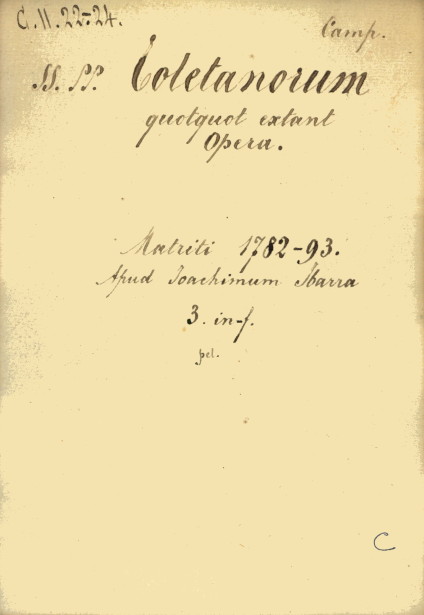 C.11.22-24.
Camp.
SS. PP. Toletanorum
quotquot extant
Opera.
Matriti 1782-93.
Apud Joachimum Ibarra
3. in-f.
pel.
C